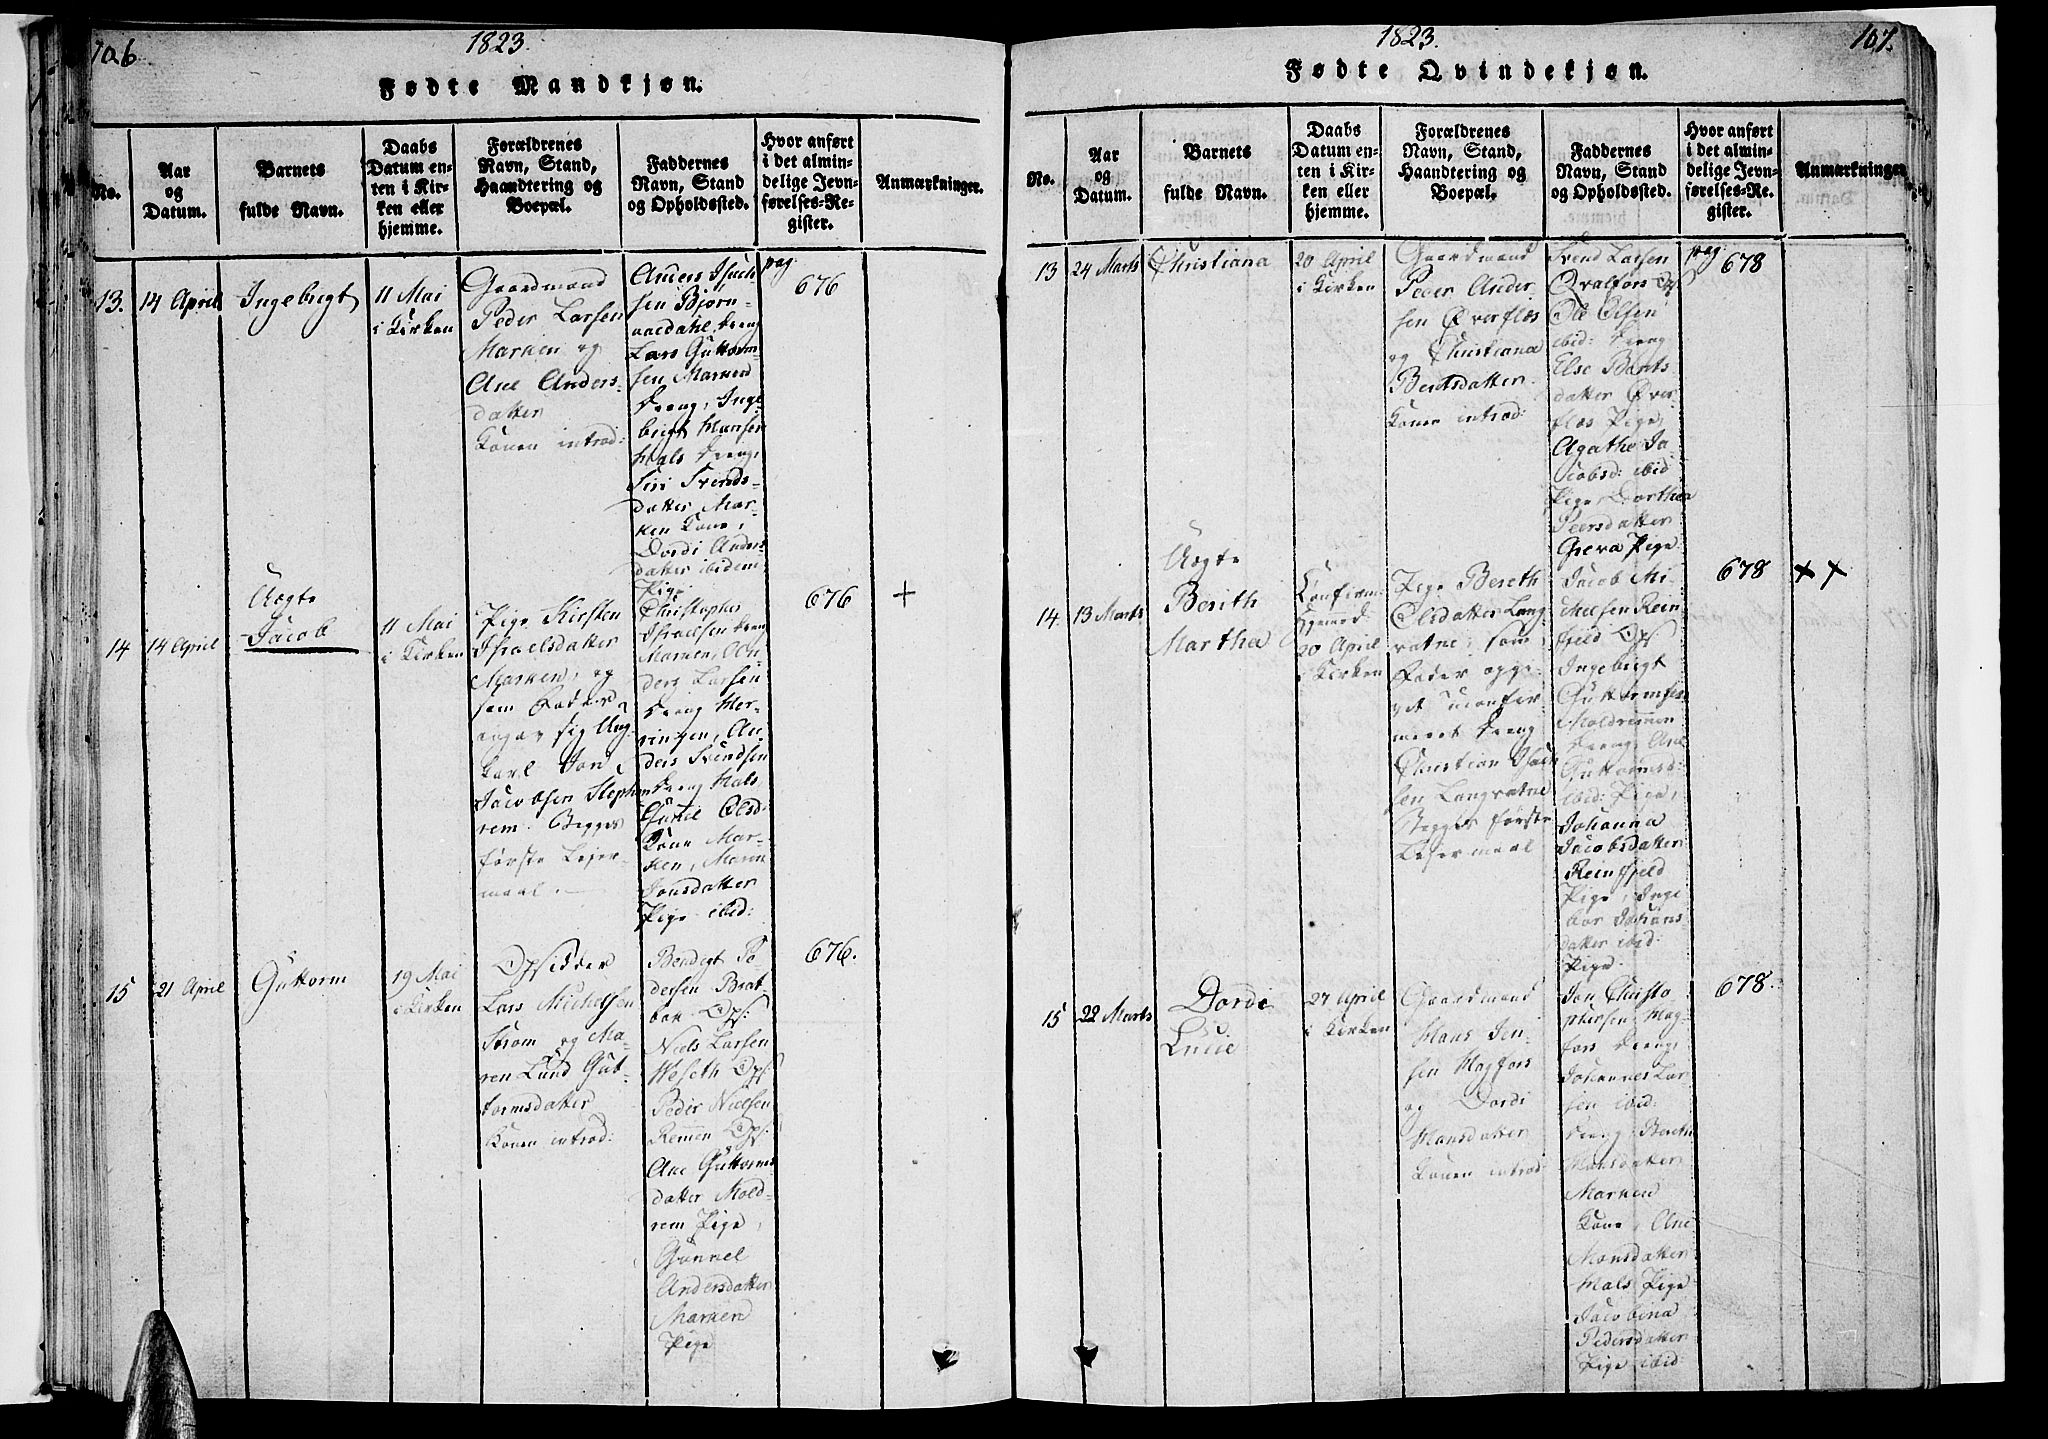 106
1823.
Fødte Mandkjøn.
No.
Aar
og
Datum.
Barnets
fulde Navn.
Daabs
Datum en-
ten i Kir-
ken eller
hjemme.
Forældrenes
Navn, Stand,
Haandtering og
Boepæl.
Faddernes
Navn, Stand
og Opholdssted.
Hvor anført
i det almin-
delige Jevn-
førelses-Re-
gister.
Anmærkninger.
13.
14 April
Ingebrigt
11 Mai
i Kirken
Gaardmand
Peder Larsen
Marken og
Ane Anders-
datter
Konen introd:
Anders Isach-
sen Bjørn-
aaedahl, Dreng
Lars Guttorm-
sen Marken
Dreng, Inge-
brigt Hansen
Hals Dreng,
Siri Svends-
datter Mar-
ken Kone,
Dordi Anders-
datter ibidem
Pige
pag.
676
14
14 April
Uægte
Jacob
11 Mai
i Kirken
Pige Kirsten
Israelsdatter
Marken, og
som Fader
angav sig Ung-
karl Jon
Jacobsen Stephen
rem. Begges
første Leier-
maal.
Christopher
Israelsen Dreng
Marken, An-
ders Larsen
Dreng Her-
ringen, An-
ders Svendsen
Dreng Hals,
Guriel Olsd:
Kone Mar-
ken, Maren
Jonsdatter
Pige ibid:
676
+
15
21 April
Guttorm
19 Mai
i Kirken
Opsidder
Lars Michelsen
Strøm og Ma-
ren Lund Gut-
tormsdatter
Konen introd:
Bendigt Pe-
dersen Brat-
bak Ops:
Niels Larsen
Weseth Ops:
Peder Nielsen
Remmen Ops:
Ane Guttorms
datter Mold-
rem Pige,
Gunnel
Andersdatter
Marken
Pige
676.
1823.
107.
Fødte Qvindekjøn.
No.
Aar
og
Datum.
Barnets
fulde Navn.
Daabs
Datum en-
ten i Kir-
ken eller
hjemme.
Forældrenes
Navn, Stand,
Haandtering og
Boepæl.
Faddernes
Navn, Stand
og Opholdssted.
Hvor anført
i det almin-
delige Jevn-
førelses-Re-
gister.
Anmærkninger
13
24 Marts
Christiana
20 April
i Kirken
Gaardmand
Peder Ander
sen Øverflæs
og Christiana
Berntsdatter
Konen introd:
Svend Larsen
Qvalfors Ops
Ole Olsen
ibid: Dreng
Else Bernts
datter Øver
flæs Pige,
Agatha Ja-
cobsd: ibid
Pige, Dorthea
Peersdatter
Greva Pige
pag
678
14.
13 Marts
Uægte
Berith
Martha
Confirm:
Hjemmed:
20 April
i Kirken
Pige Bereth
Olsdatter Lang
vatne, som
Fader opgi-
vet uconfir
meret Dreng
Christian Isach
sen Langvatne
Begges første
Leiermaal
Jacob Mi-
chelsen Rein
fjeld Ops
Ingebrigt
Guttormsen
Moldremmen
Dreng, Ane
Guttormsd:
ibid: Pige,
Johanna
Jacobsdatter
Reinfjeld
Pige, Inge
bor Johans
datter ibid:
Pige
678
+ +
15
22 Marts
Dordi
Lucie
27 April
i Kirken
Gaardmand
Hans Jen-
sen Hagfors
og Dordi
Hansdatter
Konen introd:
Jon Christo-
phersen Hag-
fors Dreng,
Johannes Lar
sen ibid:
Dreng, Bereth
Hansdatter
Marken
Kone, Ane
Hansdatter
Hals Pige
Jacobina
Pedersdatter
Pige ibid:
678.